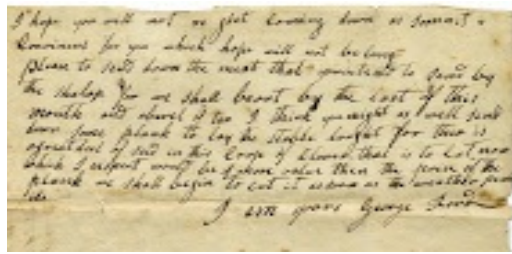 I hope you will not neglect Coming down as soon as is
Convinient for you which hope will not be long
please to send down the meat that you intend to send by
the shalop for we shall be out by the last of this
month and I think you might as well send
down some plank to lay the stable for there is
a great deal of seed in this Crop of Clover that is to Cut now
which I expect wont be of more value then the price of the
plank we shall begin to cut it as soon as the weather
I am yours George